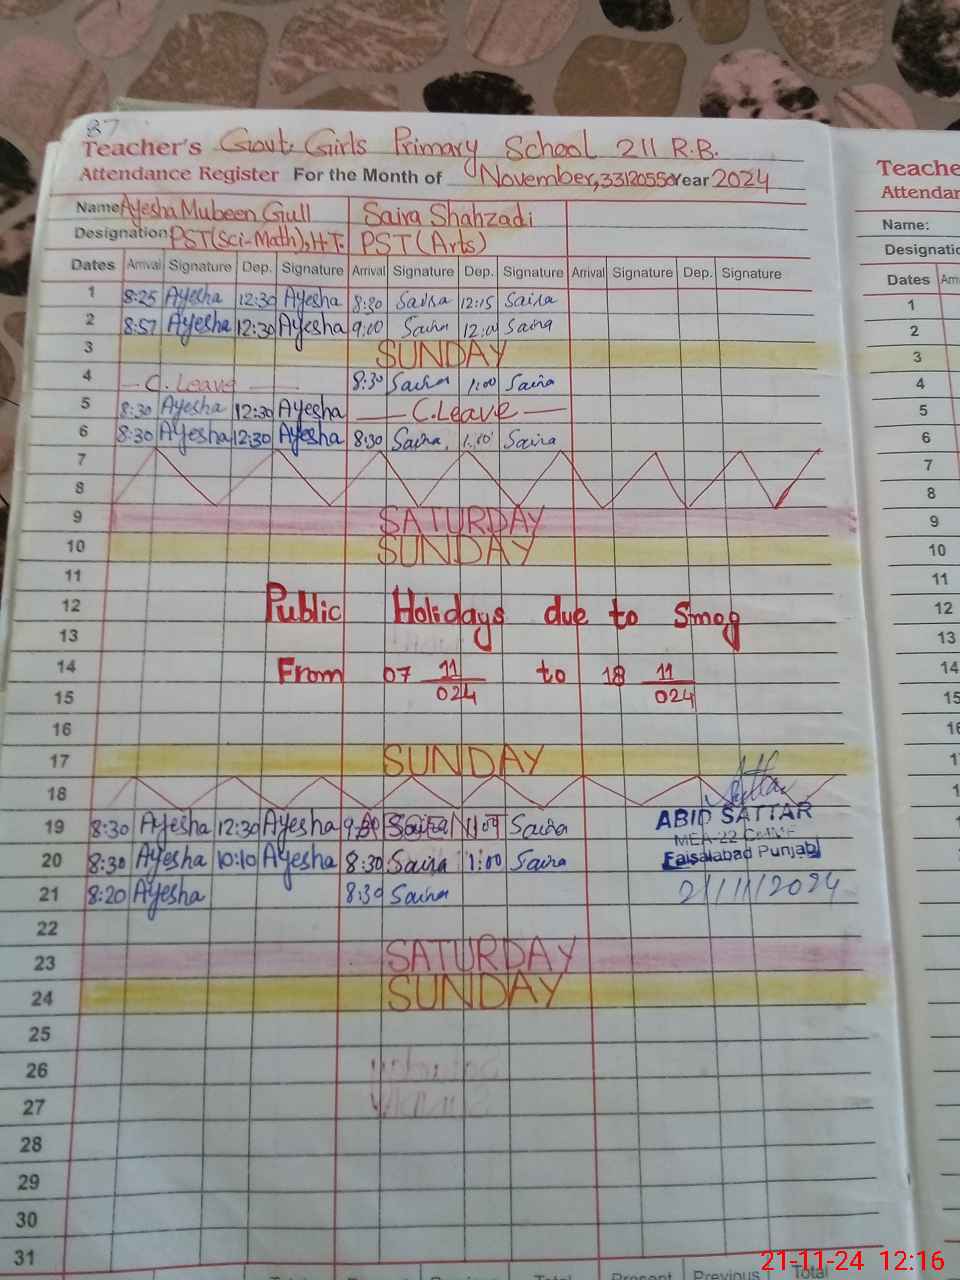 87
Teacher's Govt. Girls Primary School 211 R.B.
Attendance Register For the Month of November, 33120550 Year 2024
Name Ayesha Mubeen Gull Saira Shahzadi
Designation: PST(Sci-Math), H.T. PST (Arts)
Dates Arrival Signature Dep. Signature Arrival Signature Dep. Signature Arrival Signature Dep. Signature
1 8:25 Ayesha 12:30 Ayesha 8:30 Saira 12:15 Saira
2 8:57 Ayesha 12:30 Ayesha 9:00 Saira 12:00 Saira
3 SUNDAY
4 C. Leave 8:30 Saira 1:00 Saira
5 8:30 Ayesha 12:30 Ayesha C. Leave
6 8:30 Ayesha 12:30 Ayesha 8:30 Saira 1:00 Saira
7
8
9 SATURDAY
10 SUNDAY
11
12 Public Holidays due to Smog
13
14 From 07 11 to 18 11
15 024 024
16
17 SUNDAY
18
19 8:30 Ayesha 12:30 Ayesha Saira Saira
20 8:30 Ayesha 10:10 Ayesha 8:30 Saira 1:00 Saira
21 8:20 Ayesha 8:30 Saira
ABID SATTAR
MEA-22
Faisalabad Punjab
21/11/2024
22
23 SATURDAY
24 SUNDAY
25
26
27
28
29
30
31
Total Present Previous Total
Teache
Attendan
Name:
Designatio
Dates Arri
1
2
3
4
5
6
7
8
9
10
11
12
13
14
15
21-11-24 12:16